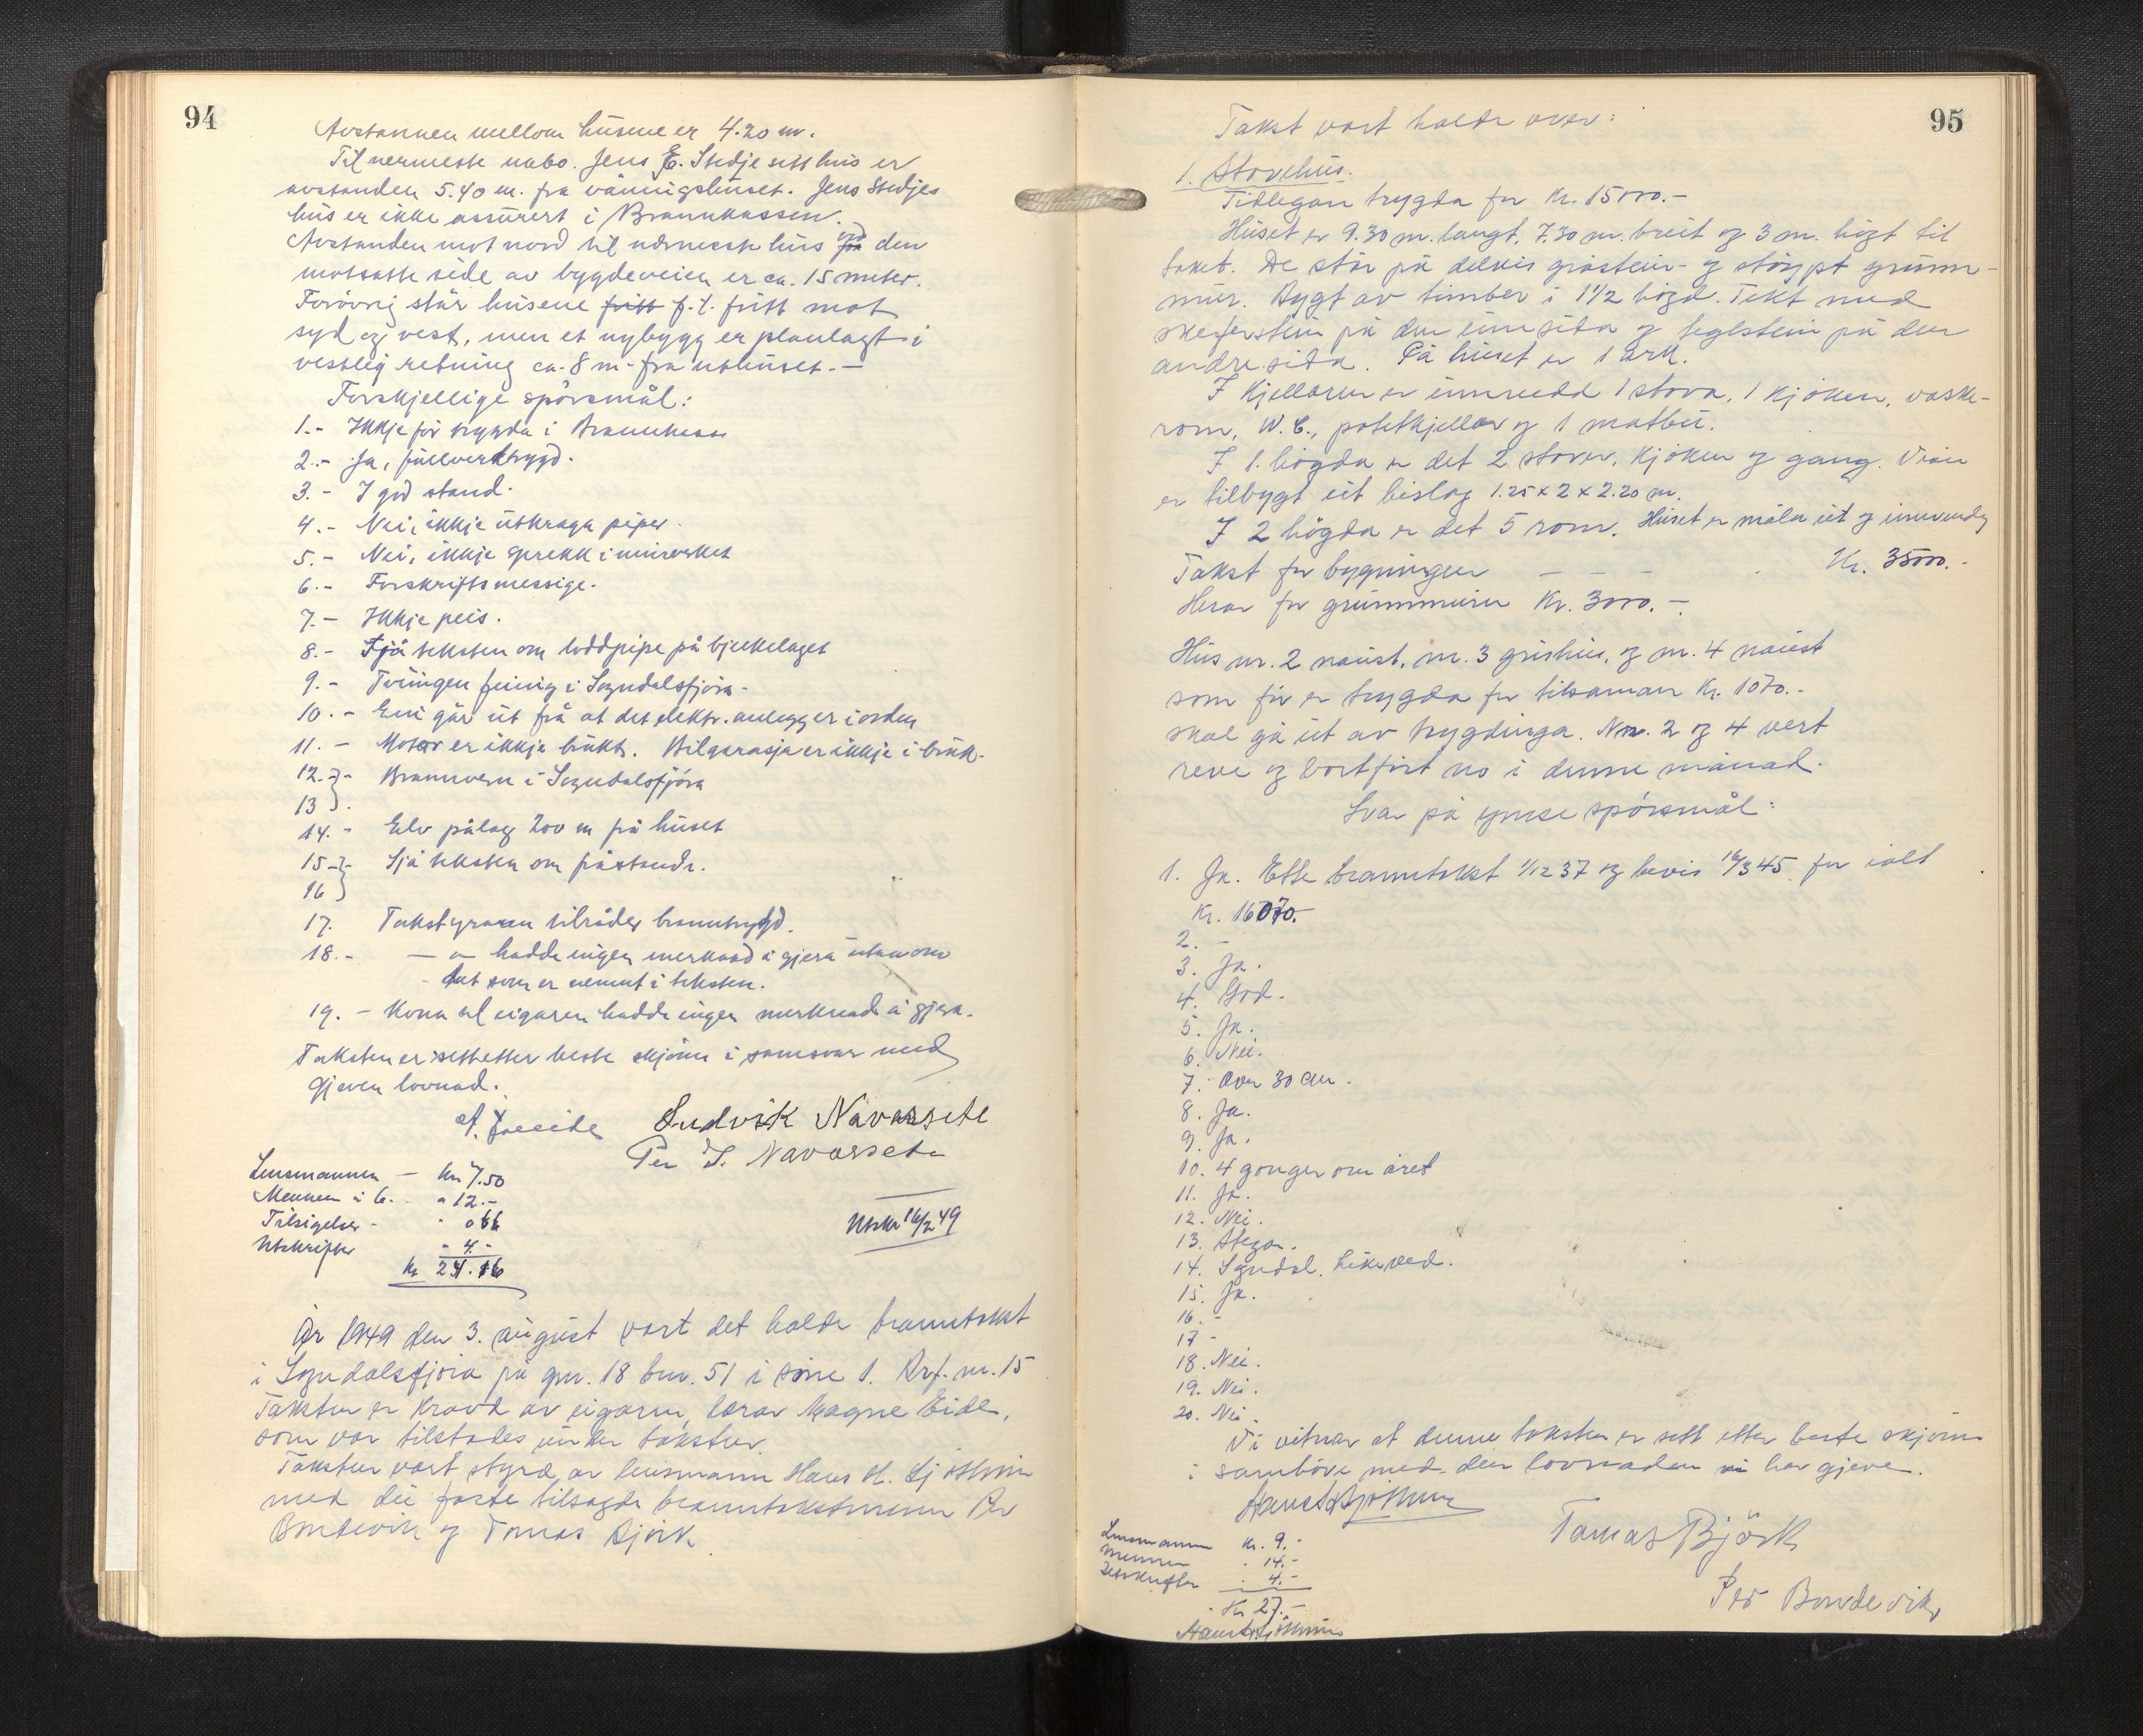 94
Avstannen mellom husene er 4.20 m.
Til nermeste nabo. Jens E. Stedje sitt hus er
avstanden 5.40 m. fra våningshuset. Jens Stedjes
hus er ikke assurert i Brannkassen.
Avstanden mot nord til nærmeste hus på den
motsatte side av bygdeveien er ca. 15 meter.
Forövrig står husene fritt f.t. fritt mot
syd og vest, men et nybygg er planlagt i
vestlig retning ca. 8 m. fra uthuset. —
Forskjellige spörsmål:
1.- Ikkje för trygda i Brannkassa
2.- Ja, fullverdtrygd.
3.- I god stand.
4.- Nei, ikkje utkraga piper.
5.- Nei, ikkje sprekk i murverket
6.- Forskriftsmessige.
7.- Ikkje peis.
8.- Sjå teksten om loddpipe på bjelkelaget
9.- Tvungen feiing i Sogndalsfjöra.
10.- Ein går ut frå at det elektr. anlegg er i orden
11.- Motor er ikkje brukt. Bilgarasje er ikkje i bruk.
12.}- Brannvern i Sogndalsfjöra
13}.
14.- Elv pålag 200 m frå huset
15-}- Sjå teksten om fråstand.
16}
17. Takstgrannen tilråder branntrygd.
18.- — " — hadde ingen merknad å gjera utanom
det som er nemnt i teksten.
19.- Kona til eigaren hadde ingen merknad å gjera.
Taksten er sett etter beste skjönn i samsvar med
gjeven lovnad.
Ludvik Navarsete
Per S. Navarsete
Lensmannen — kr 7.50
Mennene à 6. - " 12.-
Tilsigelser -
Utskrifter - 4.-
Utskr 16/2 49
År 1949 den 3. august vart det halde branntakst
i Sogndalsfjöra på gnr. 18 bnr. 51 i sone 1. Brf. nr. 15
Taksten er kravd av eigaren, lærar Magne Eide,
som var tilstades under taksten.
Taksten vart styrd av lensmann Hans H. Ljöthun
med dei faste tilsagde branntakstmenn Per
Bondevik og Tomas Björk.
95
Takst vart halde over:
1. Stovehus.
Tidlegare trygda for Kr. 15000.-
Huset er 9.30 m. langt, 7.30 m. breit og 3 m. högt til
taket. De står på delvis gråstein- og stöypt grunn-
mur. Bygt av timber i 1 1/2 högd. Tekt med
skeferstein på den eine sida og teglstein på den
andre sida. På huset er 1 ark.
I kjellaren er innreidd 1 stova, 1 kjöken, vaske-
rom, W.C., potetkjellar og 1 matbu.
I 1. högda er det 2 stover, kjöken og gang. Vidare
er tilbygt eit bislag 1.25 x 2 x 2.20 m.
I 2 högda er det 5 rom. Huset er måla ut og innvendig
Takst for bygningen — — — Kr. 35000.-
Herav for grunnmuren Kr. 3000.-
Hus nr. 2 naust, nr. 3 grishus, og nr. 4 naust
som för er trygda for tilsaman Kr. 1070.-
skal gå ut av trygdinga. Nr. 2 og 4 vert
reve og bortfört no i denne månad.
Svar på ymse spörsmål:
1. Ja. Etter branntakst 1/12 37 og bevis 16/3 45 for ialt
Kr. 16070.-
2. -
3. Ja.
4. God.
5. Ja.
6. Nei.
7. Over 30 cm.
8. Ja.
9. Ja.
10. 4 gonger om året
11. Ja.
12. Nei.
13.
14. Sogndal.
15. Ja.
16. -
17 -
18. Nei.
19. Nei.
20. Nei.
Vi vitnar at denne taksten er sett etter beste skjönn
i samhöve med den lovnaden vi har gjeve.
Hans H Ljöthun
Tomas Björk
Per Bondevik
Lensmannen Kr. 9.-
Mennene " 14.-
Utskrifter " 4.-
Kr 27.-
Hans H Ljöthun